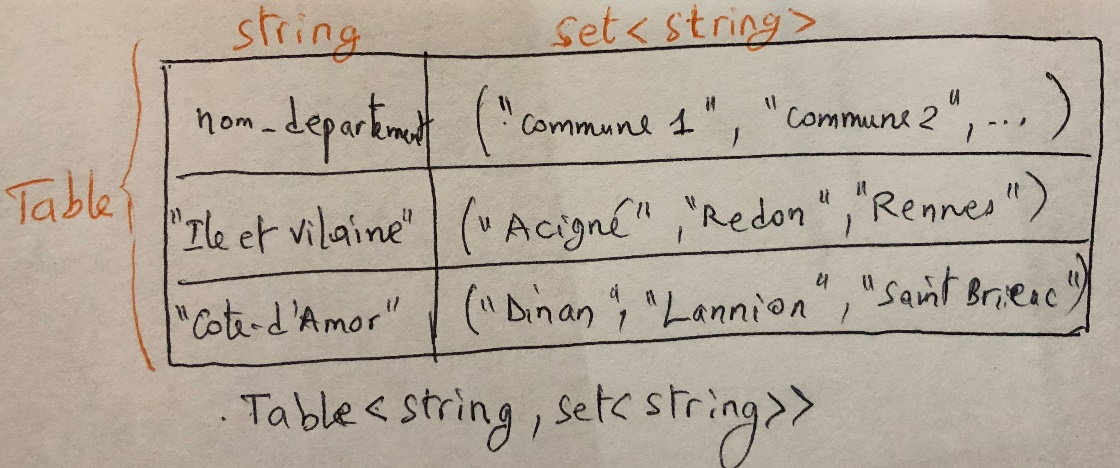 string set<string>
nom_departement ("commune 1", "commune 2", ...)
Table
"Ile et vilaine" ("Acigné", "Redon", "Rennes")
"Cote-d'Amor" ("Dinan", "Lannion", "Saint Brieac")
. Table<string, set<string>>